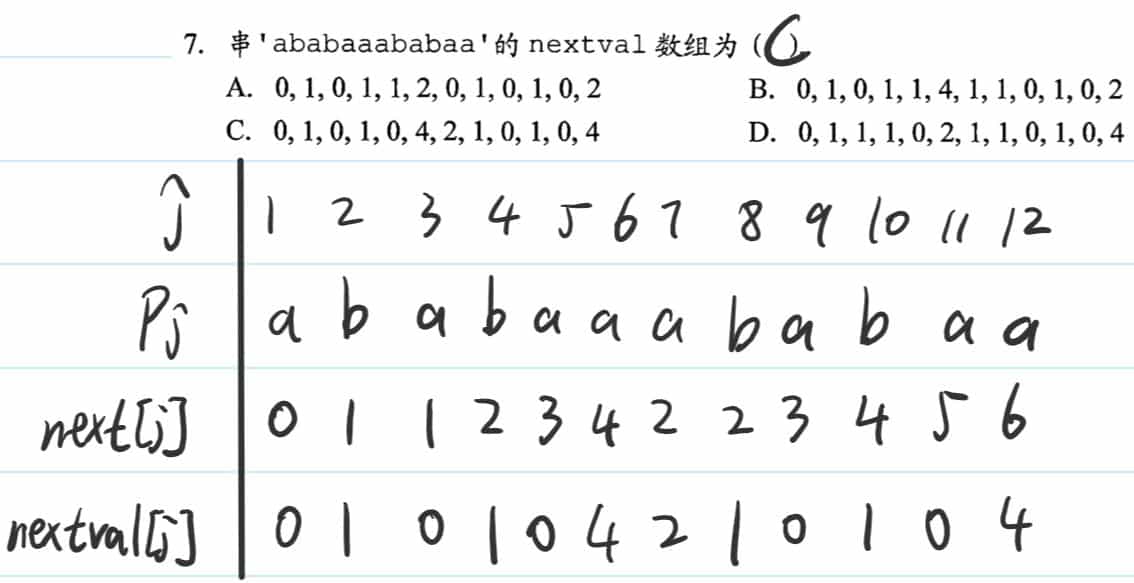 7. 串'ababaaababaa'的 nextval 数组为 (C)。
A. 0, 1, 0, 1, 1, 2, 0, 1, 0, 1, 0, 2 B. 0, 1, 0, 1, 1, 4, 1, 1, 0, 1, 0, 2
C. 0, 1, 0, 1, 0, 4, 2, 1, 0, 1, 0, 4 D. 0, 1, 1, 1, 0, 2, 1, 1, 0, 1, 0, 4
j 1 2 3 4 5 6 7 8 9 10 11 12
Pj a b a b a a a b a b a a
next[j] 0 1 1 2 3 4 2 2 3 4 5 6
nextval[j] 0 1 0 1 0 4 2 1 0 1 0 4